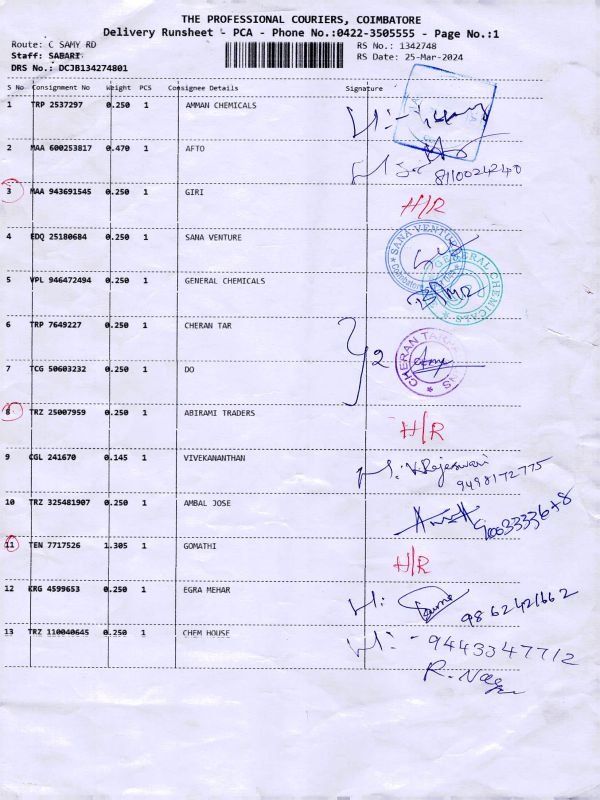 THE PROFESSIONAL COURIERS, COIMBATORE
Delivery Runsheet - PCA - Phone No.:0422-3505555 - Page No.:1
Route: C SAMY RD
RS No.: 1342748
Staff: SABARI
RS Date: 25-Mar-2024
DRS No.: DCJB134274801
S No Consignment No Weight PCS Consignee Details Signature
1 TRP 2537297 0.250 1 AMMAN CHEMICALS
2 MAA 600253817 0.470 1 AFTO
8110024240
3 MAA 943691545 0.250 1 GIRI H/R
4 EDQ 25180684 0.250 1 SANA VENTURE
SANA VENTURE
5 VPL 946472494 0.250 1 GENERAL CHEMICALS
GENERAL CHEMICALS
6 TRP 7649227 0.250 1 CHERAN TAR
2
CHERAN TAR
7 TCG 50603232 0.250 1 DO
8 TRZ 25007959 0.250 1 ABIRAMI TRADERS
H/R
9 CGL 241670 0.145 1 VIVEKANANTHAN
V.Rajeswari
9498172775
10 TRZ 325481907 0.250 1 AMBAL JOSE
11 TEN 7717526 1.305 1 GOMATHI
H/R
12 KRG 4599653 0.250 1 EGRA MEHAR
9862421662
13 TRZ 110040645 0.250 1 CHEM HOUSE
9443347712
R. Naga